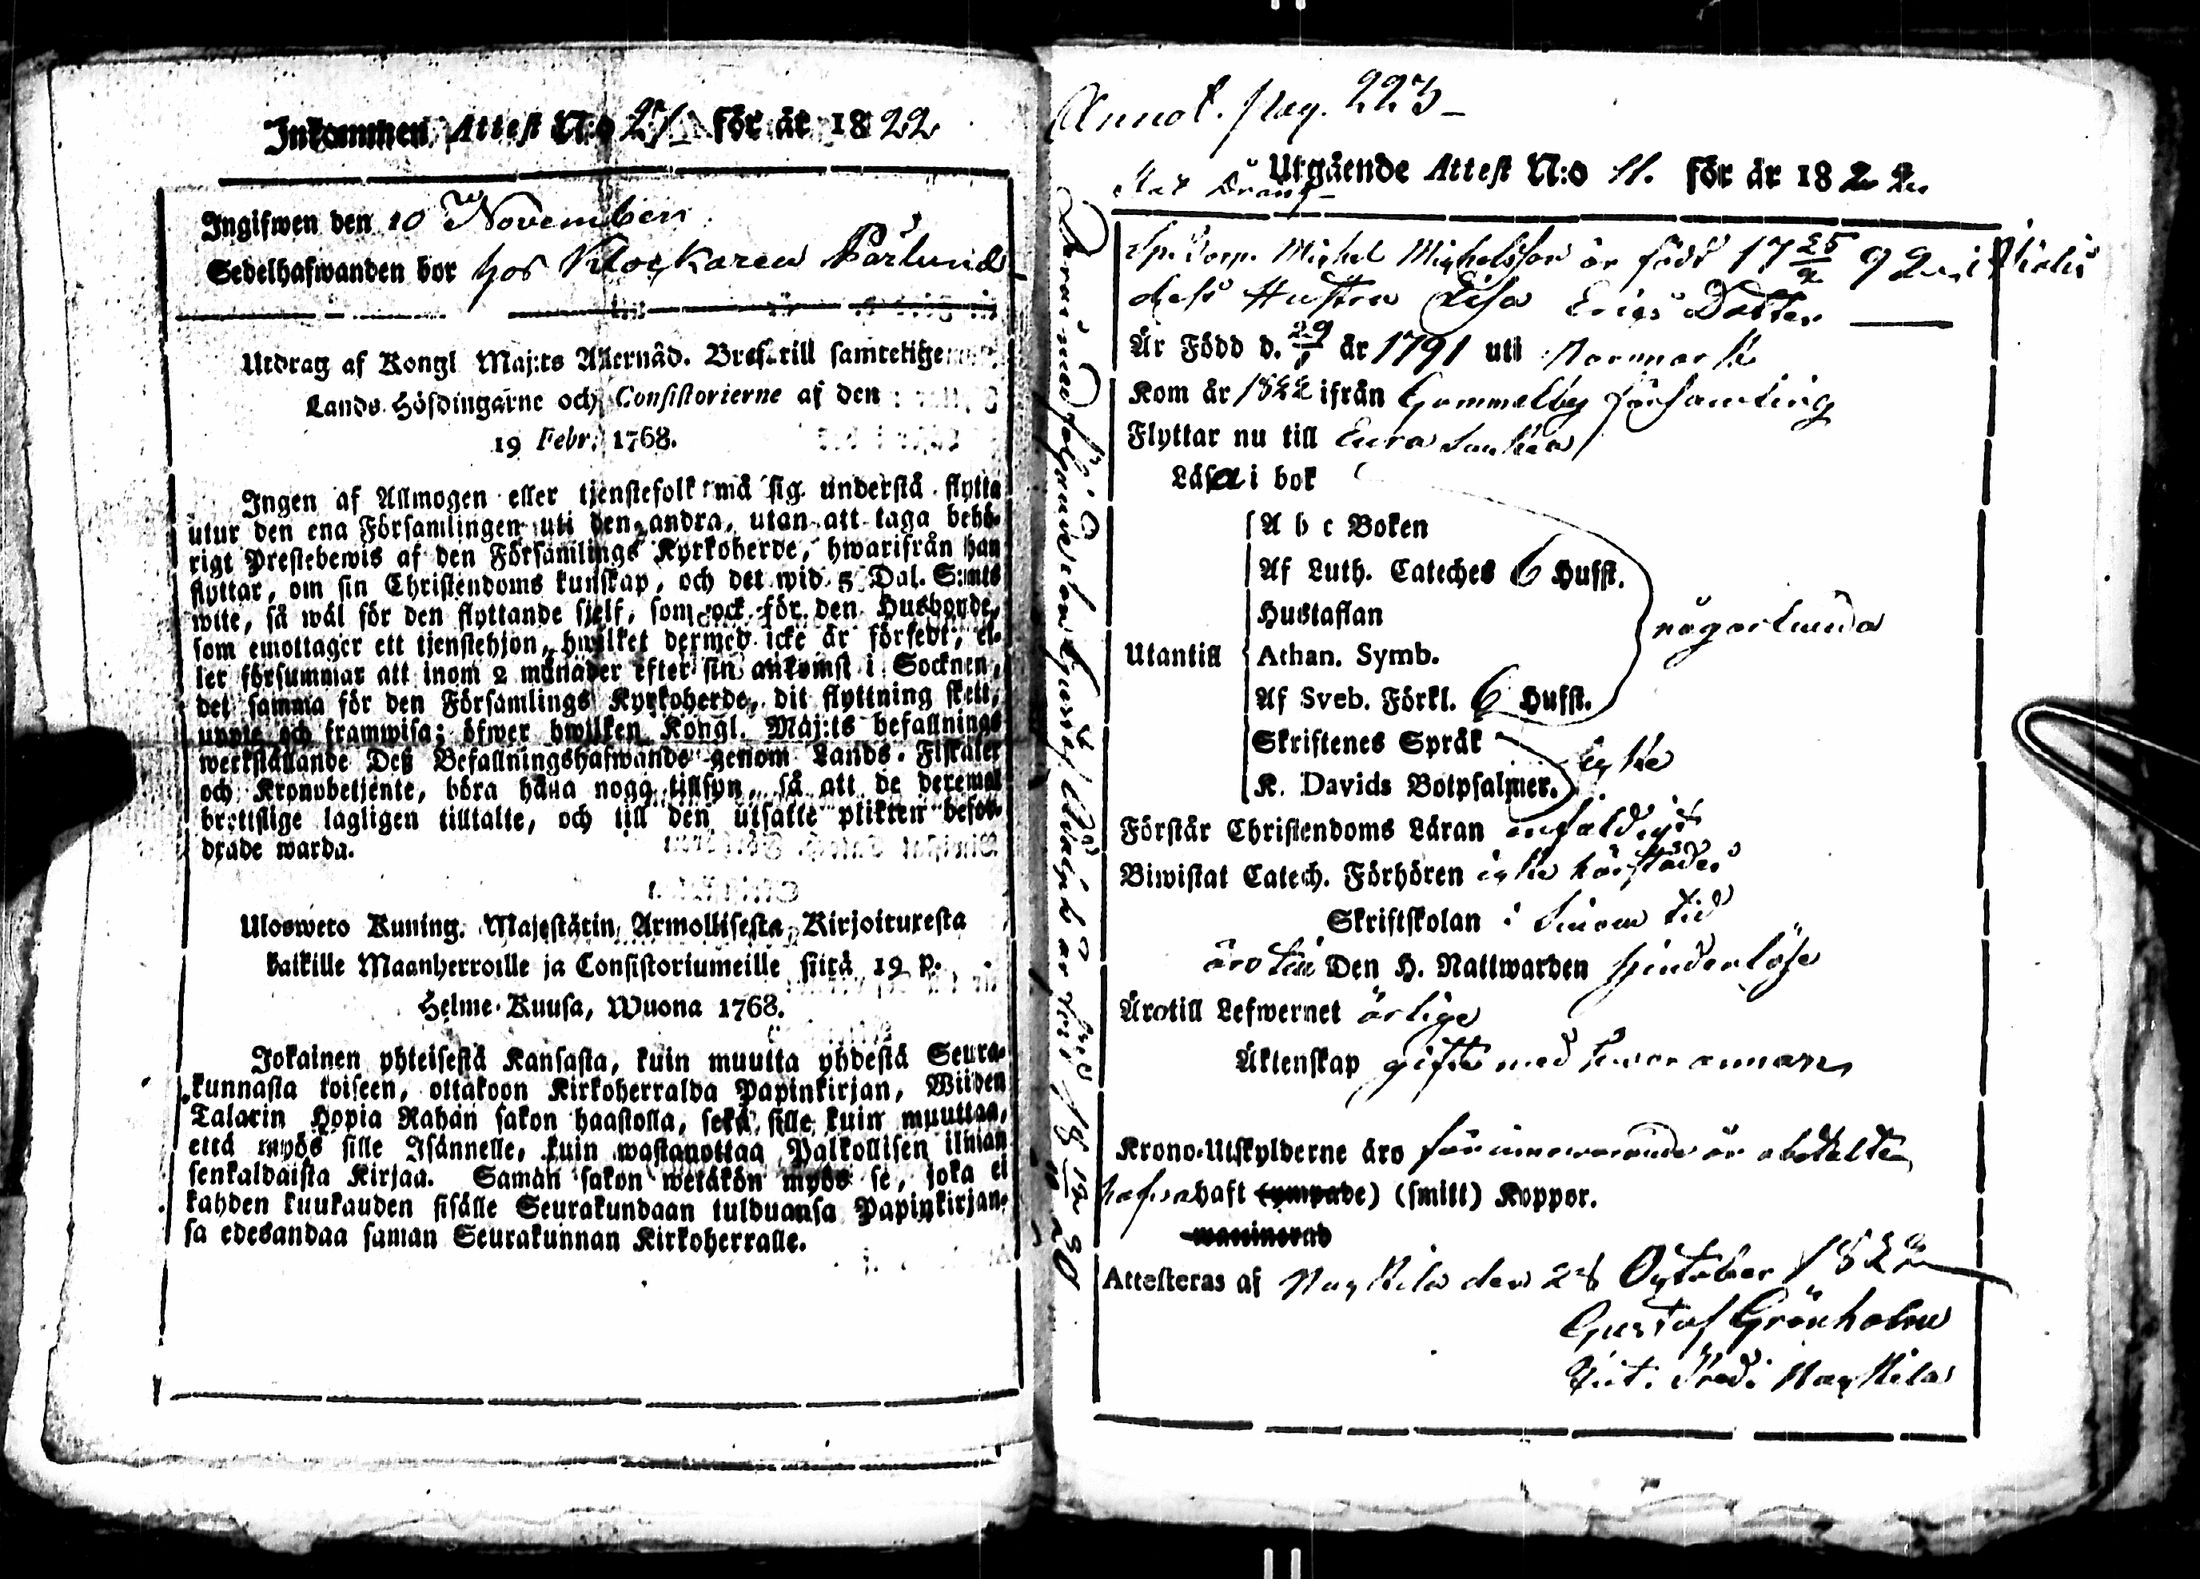 Inkommen Attest N:o 27 för år 1822
Ingifwen den 10 November
Sedelhafwanden bor hos Klockaren Pärlund
Utdrag af Kongl Maj:ts Allernåd. Bref till samtelige
Lands-Höfdingarne och Consistorierne af den
19 Febr. 1768.
Ingen af Allmogen eller tjenstefolk må sig understå flytta
utur den ena Församlingen uti den andra, utan att taga behö-
rigt Prestebewis af den Församlings Kyrkoherde, hwarifrån han
flyttar, om sin Christendoms kunskap, och det wid 5 Dal. S:mts
wite, så wäl för den flyttande sjelf, som ock för den Husbonde,
som emottager ett tjenstehjon, hwilket dermed icke är försedt; el-
ler försummar att inom 2 månader efter sin ankomst i Socknen,
det samma för den Församlings Kyrkoherde, dit flyttning skett,
uppte och framwisa; öfwer hwilken Kongl. Maj:ts befallnings
werkställande Deß Befallningshafwande genom Lands-Fiskaler
och Kronobetjente, böra hafwa noga tillsyn, så att de deremot
brottslige lagligen tilltalte, och till den utsatte plikten befor-
drade warda.
Ulosweto Kuning. Majestätin Armollisesta Kirjoituxesta
kaikille Maanherroille ja Consistoriumeille siitä 19 p.
Helme-Kuusa, Wuona 1768.
Jokainen yhteisestä Kansasta, kuin muutta yhdestä Seura-
kunnasta toiseen, ottakoon Kirkoherralda Papinkirjan, Wiiden
Talarin Hopia Rahan sakon haastolla, sekä sille kuin muuttaa,
että myös sille Isännelle, kuin wastanottaa Palkollisen ilman
senkaldaista Kirjaa. Saman sakon wetäkön myös se, joka ei
kahden kuukauden sisälle Seurakundaan tulduansa Papinkirjan-
sa edesandaa saman Seurakunnan Kirkoherralle.
Annot. pag. 223
Utgående Attest N:o 11. för år 1822
Michel Michelsson är född 17 25/2 92 i
dess Hustru Lisa Erics Dotter
Är Född d. 29/1 år 1791 uti Norrmark
Kom år 1822 ifrån Gammelby församling
Flyttar nu till Eura
Läsa i bok
A b c Boken
Af Luth. Cateches 6 Hufst.
Hustaflan
någorlunda
Utantill Athan. Symb.
Af Sveb. Förkl. 6 Hufst.
Skriftenes Språk
icke
K. Davids Botpsalmer.
Förstår Christendoms Läran enfaldigt
Biwistat Catech. Förhören icke härstädes
Skriftskolan i sinom tid
äro till Den H. Nattwarden hinderlöse
Äro till Lefwernet ärlige
Äktenskap gifte med hwarannan
Krono-Utskylderne äro för innewarande år abetalte
hafwa haft (ympade) (smitt) Koppor.
waccinerad
Attesteras af Nackila den 28 October 1822
Gustaf Grönholm